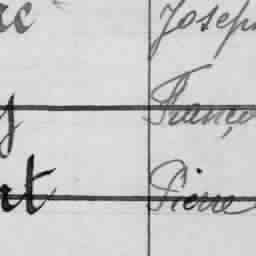 rc Joseph
y Franço
rt Pierre